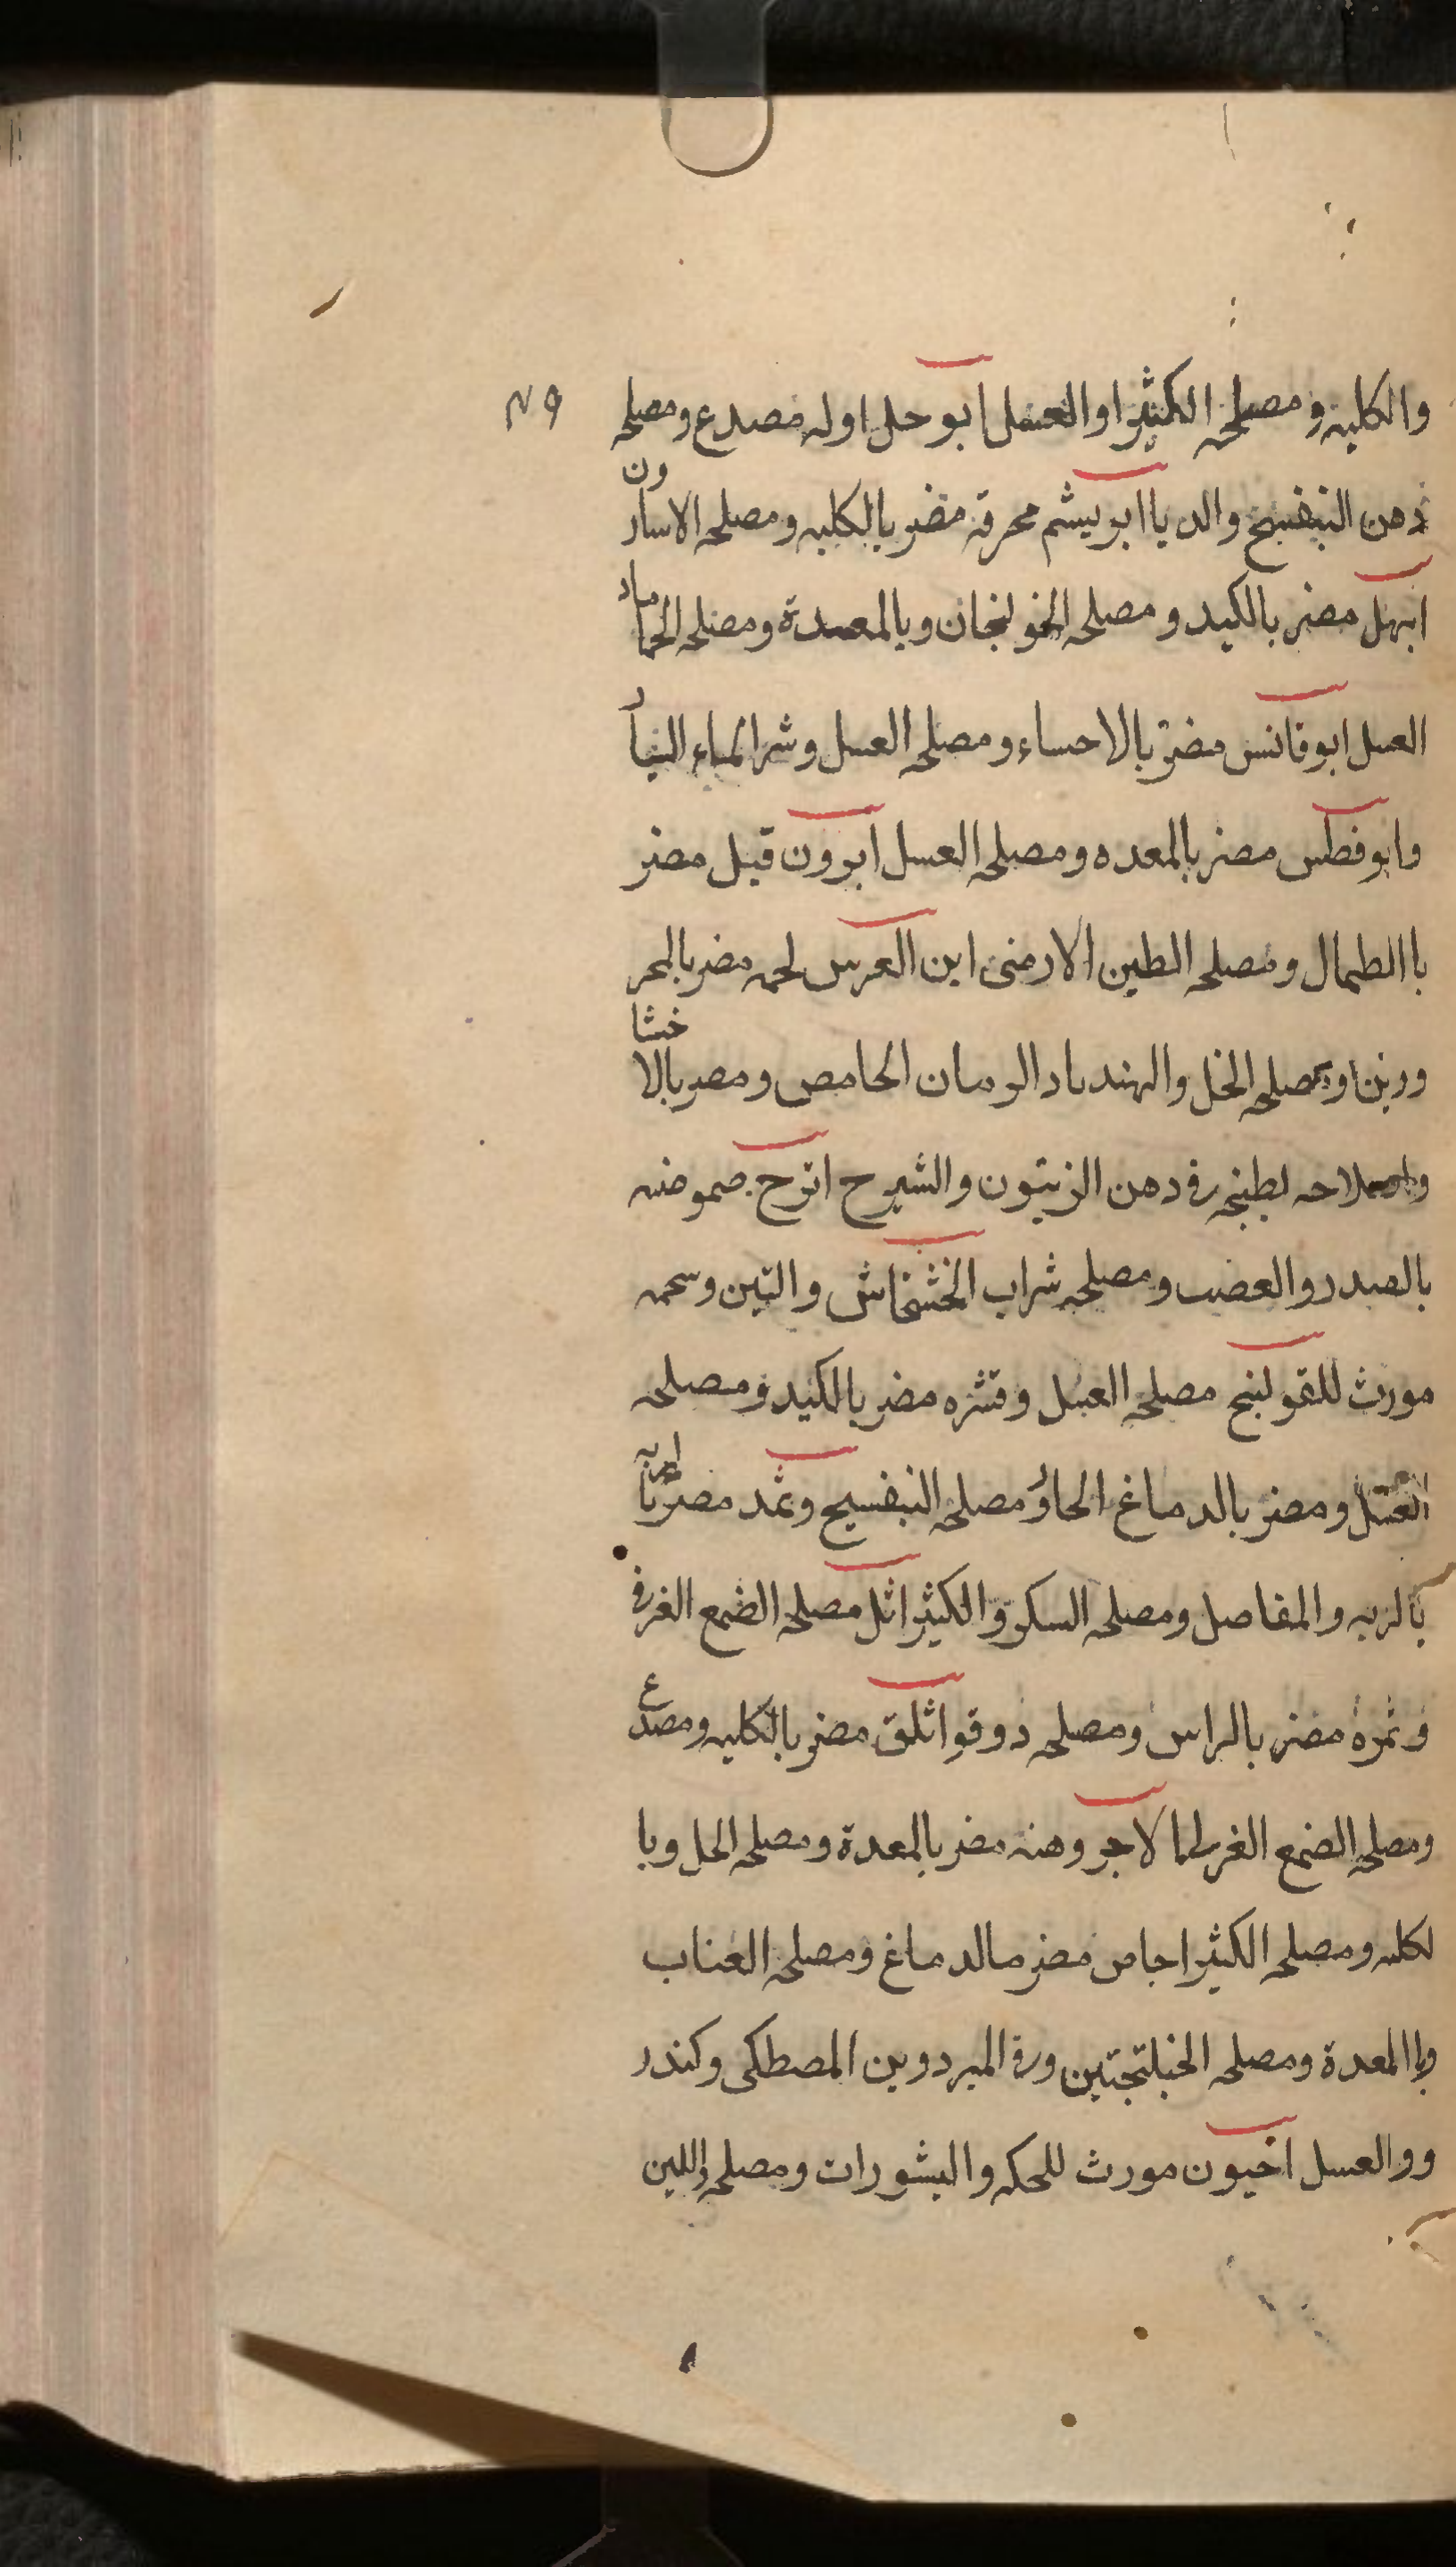 والكليه ومصلحه الكثيرا والعسل ابو حلا اوله مصدع ومصلحه ٢٩
دهن البنفسج والديا ابريشم محرقه مضر بالكليه ومصلحه الاسارون
ابهل مضر بالكبد ومصلحه الخولنجان وبالمعدة ومصلحه الحماما
العسل ابوقانس مضر بالاحساء ومصلحه العسل وشرا الماء النيا
وابوفطس مضر بالمعده ومصلحه العسل ابرون قيل مضر
باالطحال ومصلحه الطين الارمنى ابن العرس لحمه مضر بالمحر
ورين ومصلحه الخل والهندبا والرمان الحامص ومضر بالاخشا
واصلاحه بطبخه فى دهن الزيتون والشيرج اترج حموضه
بالصدر والعصب ومصلحه شراب الخشخاش والتين وشحمه
مورث للقولنج مصلحه العسل وقشره مضر بالكبد ومصلحه
العسل ومضر بالدماغ الحار ومصلحه البنفسج وثمد مضر
بالريه والمفاصل ومصلحه السكر والكثيرا اثل مصلحه الضمع الغرفى
وثمره مضر بالراس ومصلحه دوقو اثلق مضر بالكليه ومصدع
ومصلحه الضمع الغر الاجر وهنه مضر بالمعدة ومصلحه الخل وبا
لكليه ومصلحه الكثيرا اجاص مضر بالدماغ ومصلحه العناب
وباالمعدة ومصلحه وفى المبردوين المصطكى وكندر
ووالعسل اخيون مورث للحكه والبشورات ومصلحه اللبن